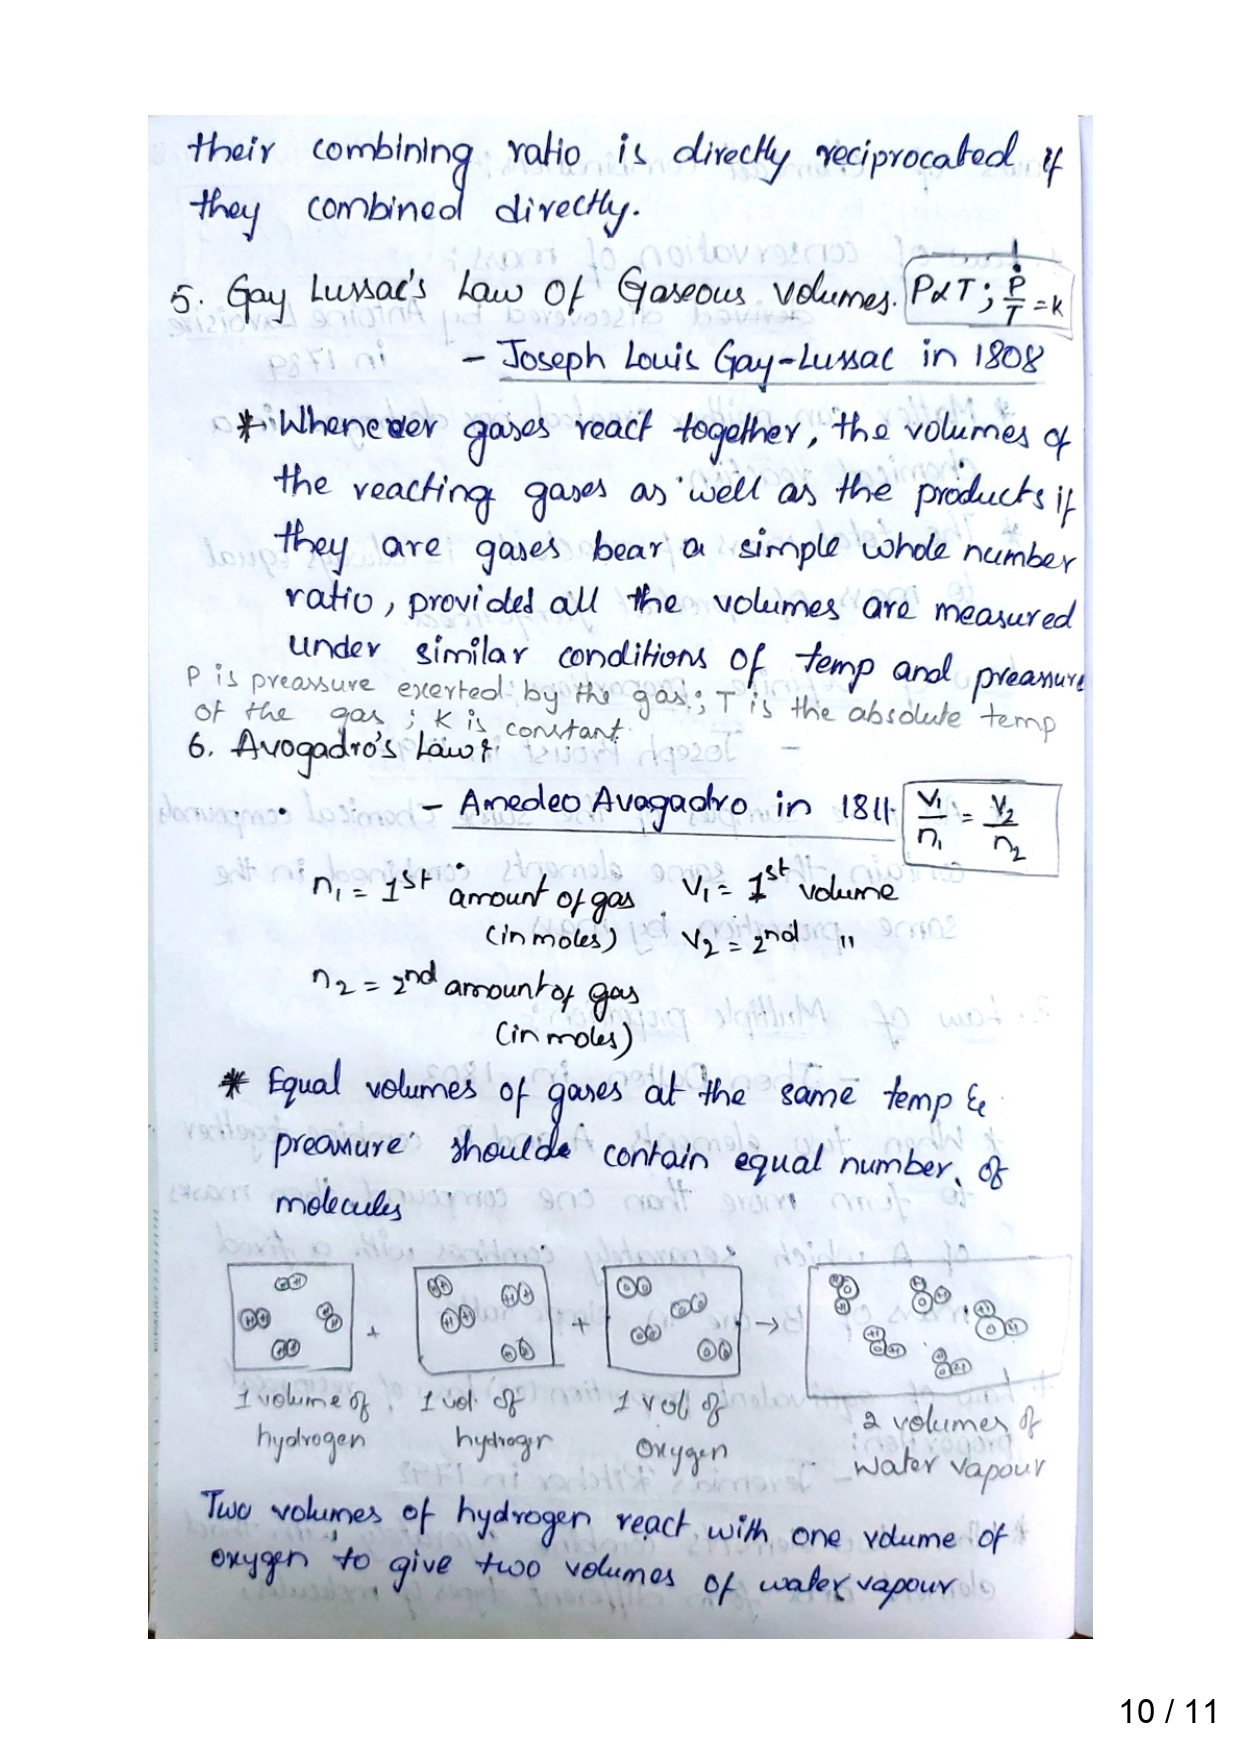 their combining ratio is directly reciprocated if
they combined directly.
5. Gay Lussac's Law Of Gaseous volumes. P∝T; P/T = k
- Joseph Louis Gay-Lussac in 1808
* Whenever gases react together, the volumes of
the reacting gases as well as the products if
they are gases bear a simple whole number
ratio, provided all the volumes are measured
under similar conditions of temp and preassure
P is preassure exerted by the gas; T is the absolute temp
of the gas ; K is constant.
6. Avogadro's Law:
- Amedeo Avagadro in 1811. V₁/n₁ = V₂/n₂
n₁ = 1st amount of gas V₁ = 1st volume
(in moles) V₂ = 2nd "
n₂ = 2nd amount of gas
(in moles)
* Equal volumes of gases at the same temp &
preassure should contain equal number of
molecules
+ + →
1 volume of 1 vol. of 1 vol of 2 volumes of
hydrogen hydrogen oxygen water vapour
Two volumes of hydrogen react with one volume of
oxygen to give two volumes of water vapour
10 / 11